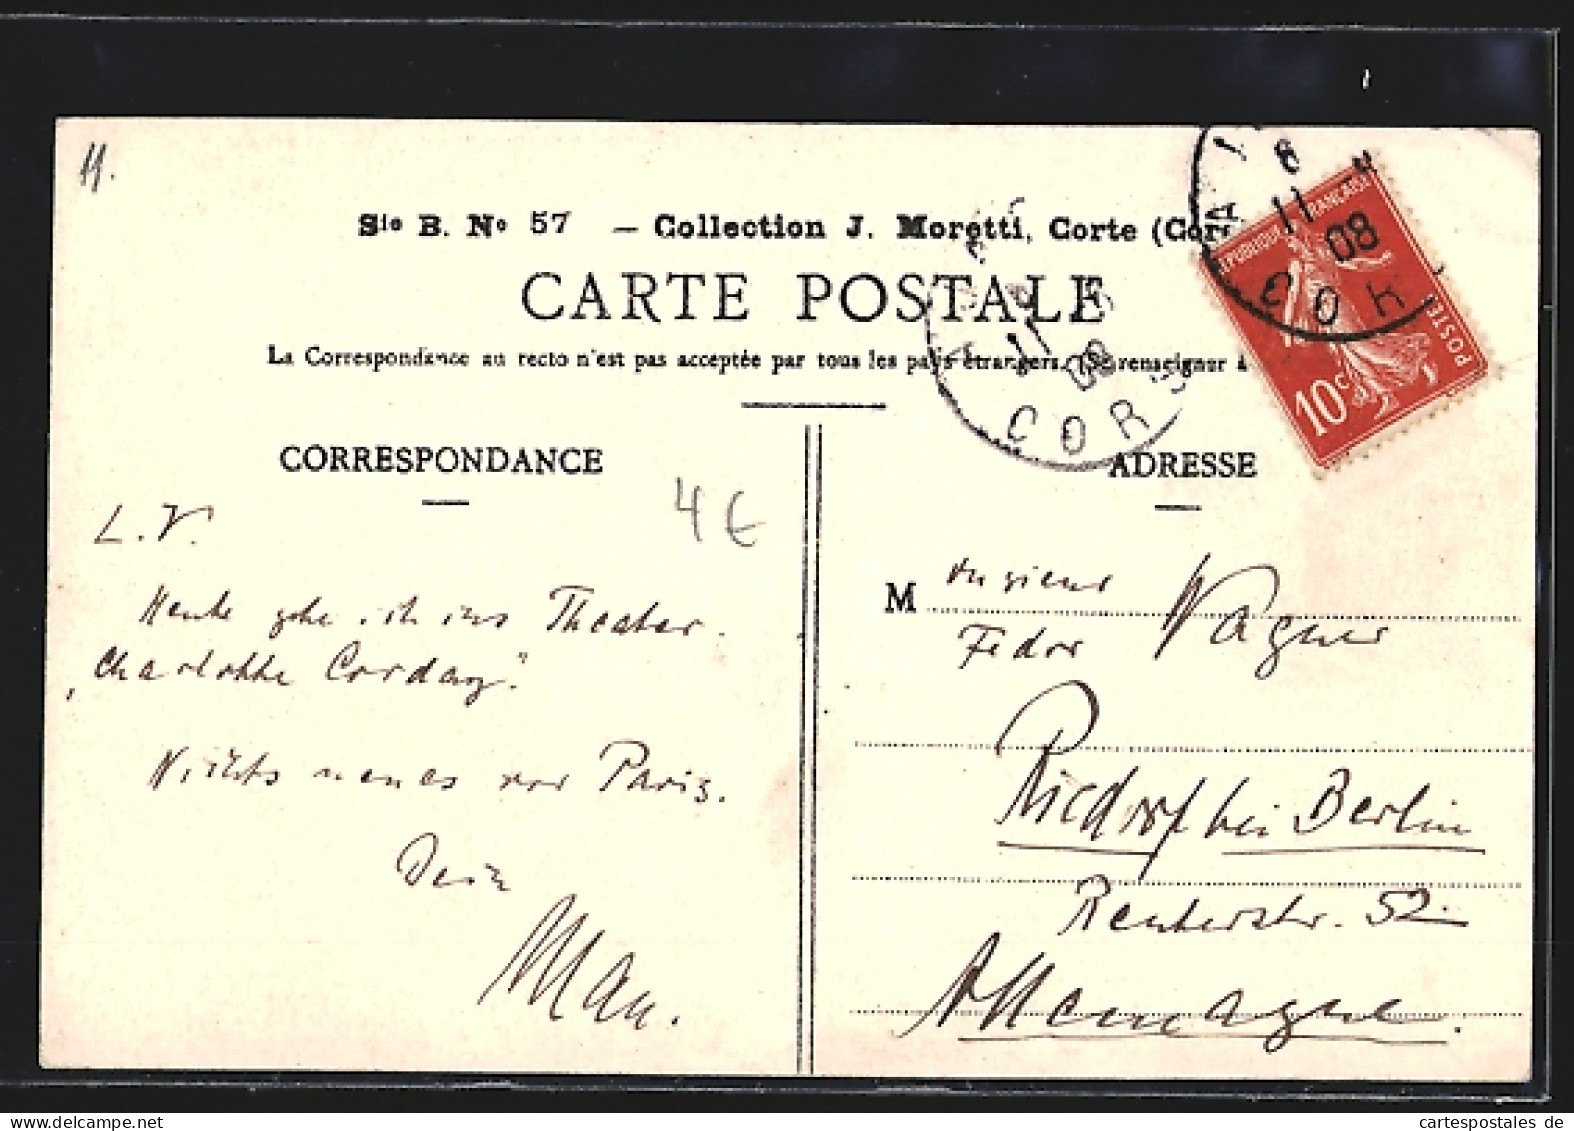 11.
Sie B. No 57 — Collection J. Moretti, Corte (Cors
CARTE POSTALE
La Correspondance au recto n'est pas acceptée par tous les pays étrangers. (Se renseigner à
CORRESPONDANCE
ADRESSE
4€
L. V.
Heute gehe ich ins Theater.
„Charlotte Corday."
Nichts neues vor Paris.
Dein
Max.
Monsieur
Fedor Wagner
Rixdorf bei Berlin
Reuterstr. 52
Allemagne.
RÉPUBLIQUE FRANÇAISE
POSTES
10c
11
08
COR
11
08
CORS
cartespostales de